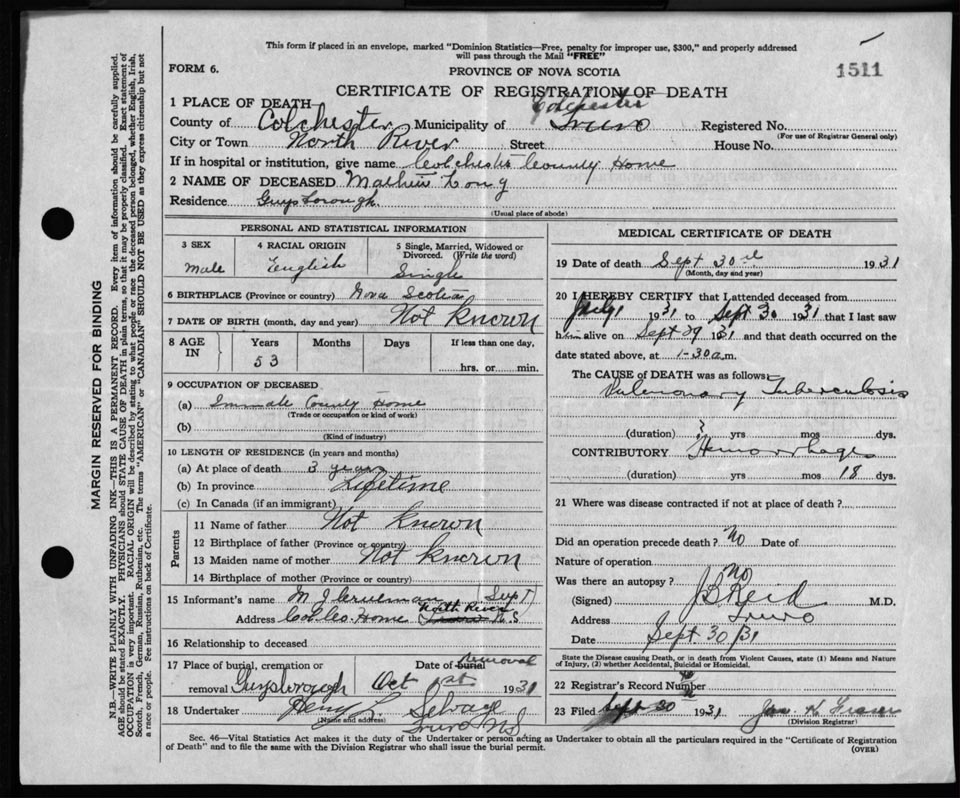 This form if placed in an envelope, marked "Dominion Statistics—Free, penalty for improper use, $300," and properly addressed
will pass through the Mail "FREE"
FORM 6.
PROVINCE OF NOVA SCOTIA
1511
CERTIFICATE OF REGISTRATION OF DEATH
1 PLACE OF DEATH Colchester
County of Colchester Municipality of Truro Registered No.
(For use of Registrar General only)
City or Town North River Street House No.
If in hospital or institution, give name Colchester County Home
2 NAME OF DECEASED Long
Residence Guysborough
(Usual place of abode)
PERSONAL AND STATISTICAL INFORMATION
3 SEX 4 RACIAL ORIGIN 5 Single, Married, Widowed or
Divorced. (Write the word)
Male English Single
6 BIRTHPLACE (Province or country) Nova Scotia
7 DATE OF BIRTH (month, day and year) Not Known
8 AGE IN Years Months Days If less than one day,
53 hrs. or min.
9 OCCUPATION OF DECEASED
(a) Inmate County Home
(Trade or occupation or kind of work)
(b)
(Kind of industry)
10 LENGTH OF RESIDENCE (in years and months)
(a) At place of death 3 years
(b) In province Lifetime
(c) In Canada (if an immigrant)
Parents
11 Name of father Not Known
12 Birthplace of father (Province or country)
13 Maiden name of mother Not Known
14 Birthplace of mother (Province or country)
15 Informant's name M J (Supt)
Address Col Co. Home North River N.S
16 Relationship to deceased
17 Place of burial, cremation or Date of burial Removal
removal Guysborough Oct 1st 1931
18 Undertaker Henry
(Name and address) Truro NS
MEDICAL CERTIFICATE OF DEATH
19 Date of death Sept 30 1931
(Month, day and year)
20 I HEREBY CERTIFY that I attended deceased from
July 1 1931 to Sept 30 1931 that I last saw
him alive on Sept 29 1931 and that death occurred on the
date stated above, at 1-30 a.m.
The CAUSE of DEATH was as follows:
Pulmonary Tuberculosis
(duration) ? yrs mos dys.
CONTRIBUTORY Hemorrhage
(duration) yrs mos 18 dys.
21 Where was disease contracted if not at place of death?
Did an operation precede death? No Date of
Nature of operation
Was there an autopsy? No
(Signed) Reid M.D.
Address Truro
Date Sept. 30/31
State the Disease causing Death, or in death from Violent Causes, state (1) Means and Nature
of Injury, (2) whether Accidental, Suicidal or Homicidal.
22 Registrar's Record Number
23 Filed Sept 30 1931 Jas. K.
(Division Registrar)
Sec. 46—Vital Statistics Act makes it the duty of the Undertaker or person acting as Undertaker to obtain all the particulars required in the "Certificate of Registration
of Death" and to file the same with the Division Registrar who shall issue the burial permit.
(OVER)
MARGIN RESERVED FOR BINDING
N.B.—WRITE PLAINLY WITH UNFADING INK—THIS IS A PERMANENT RECORD. Every item of information should be carefully supplied.
AGE should be stated EXACTLY. PHYSICIANS should STATE CAUSE OF DEATH in plain terms, so that it may be properly classified. Exact statement of
OCCUPATION is very important. RACIAL ORIGIN will be described by stating to what people or race the deceased person belonged, whether English, Irish,
Scotch, French, German, Russian, Ruthenian, etc. The terms "AMERICAN" or "CANADIAN" SHOULD NOT BE USED as they express citizenship but not
a race or people. See instructions on back of Certificate.